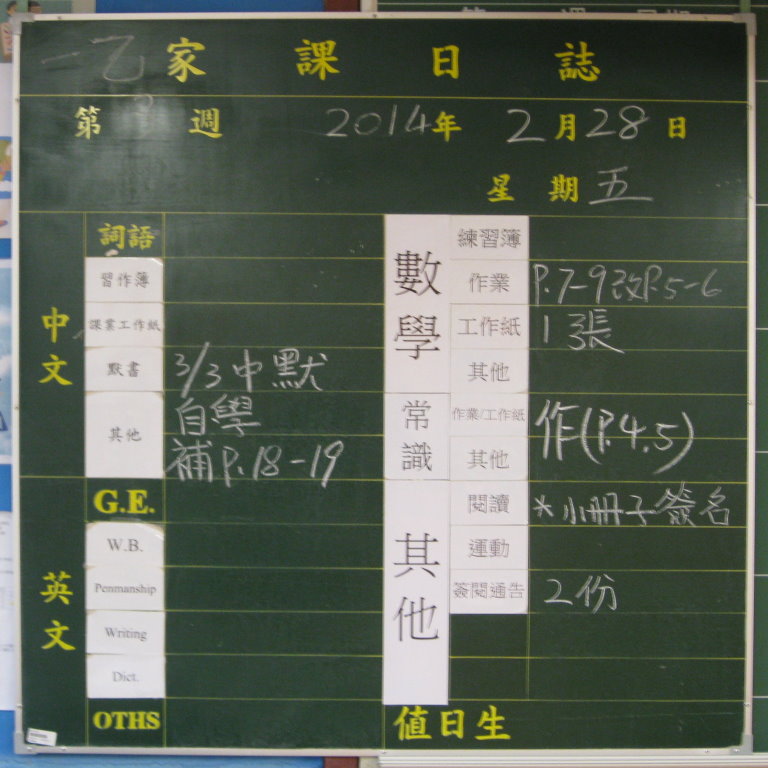 一乙 家課日誌
第 週 2014年 2月28日
星期五
中文
詞語
習作簿
課業工作紙
默書 3/3中默
其他 自學
補P.18-19
英文
G.E.
W.B.
Penmanship
Writing
Dict.
OTHS
數學
練習簿
作業 P.7-9改P.5-6
工作紙 1張
其他
常識
作業/工作紙 作(P.4.5)
其他
其他
閱讀 *小冊子簽名
運動
簽閱通告 2份
值日生